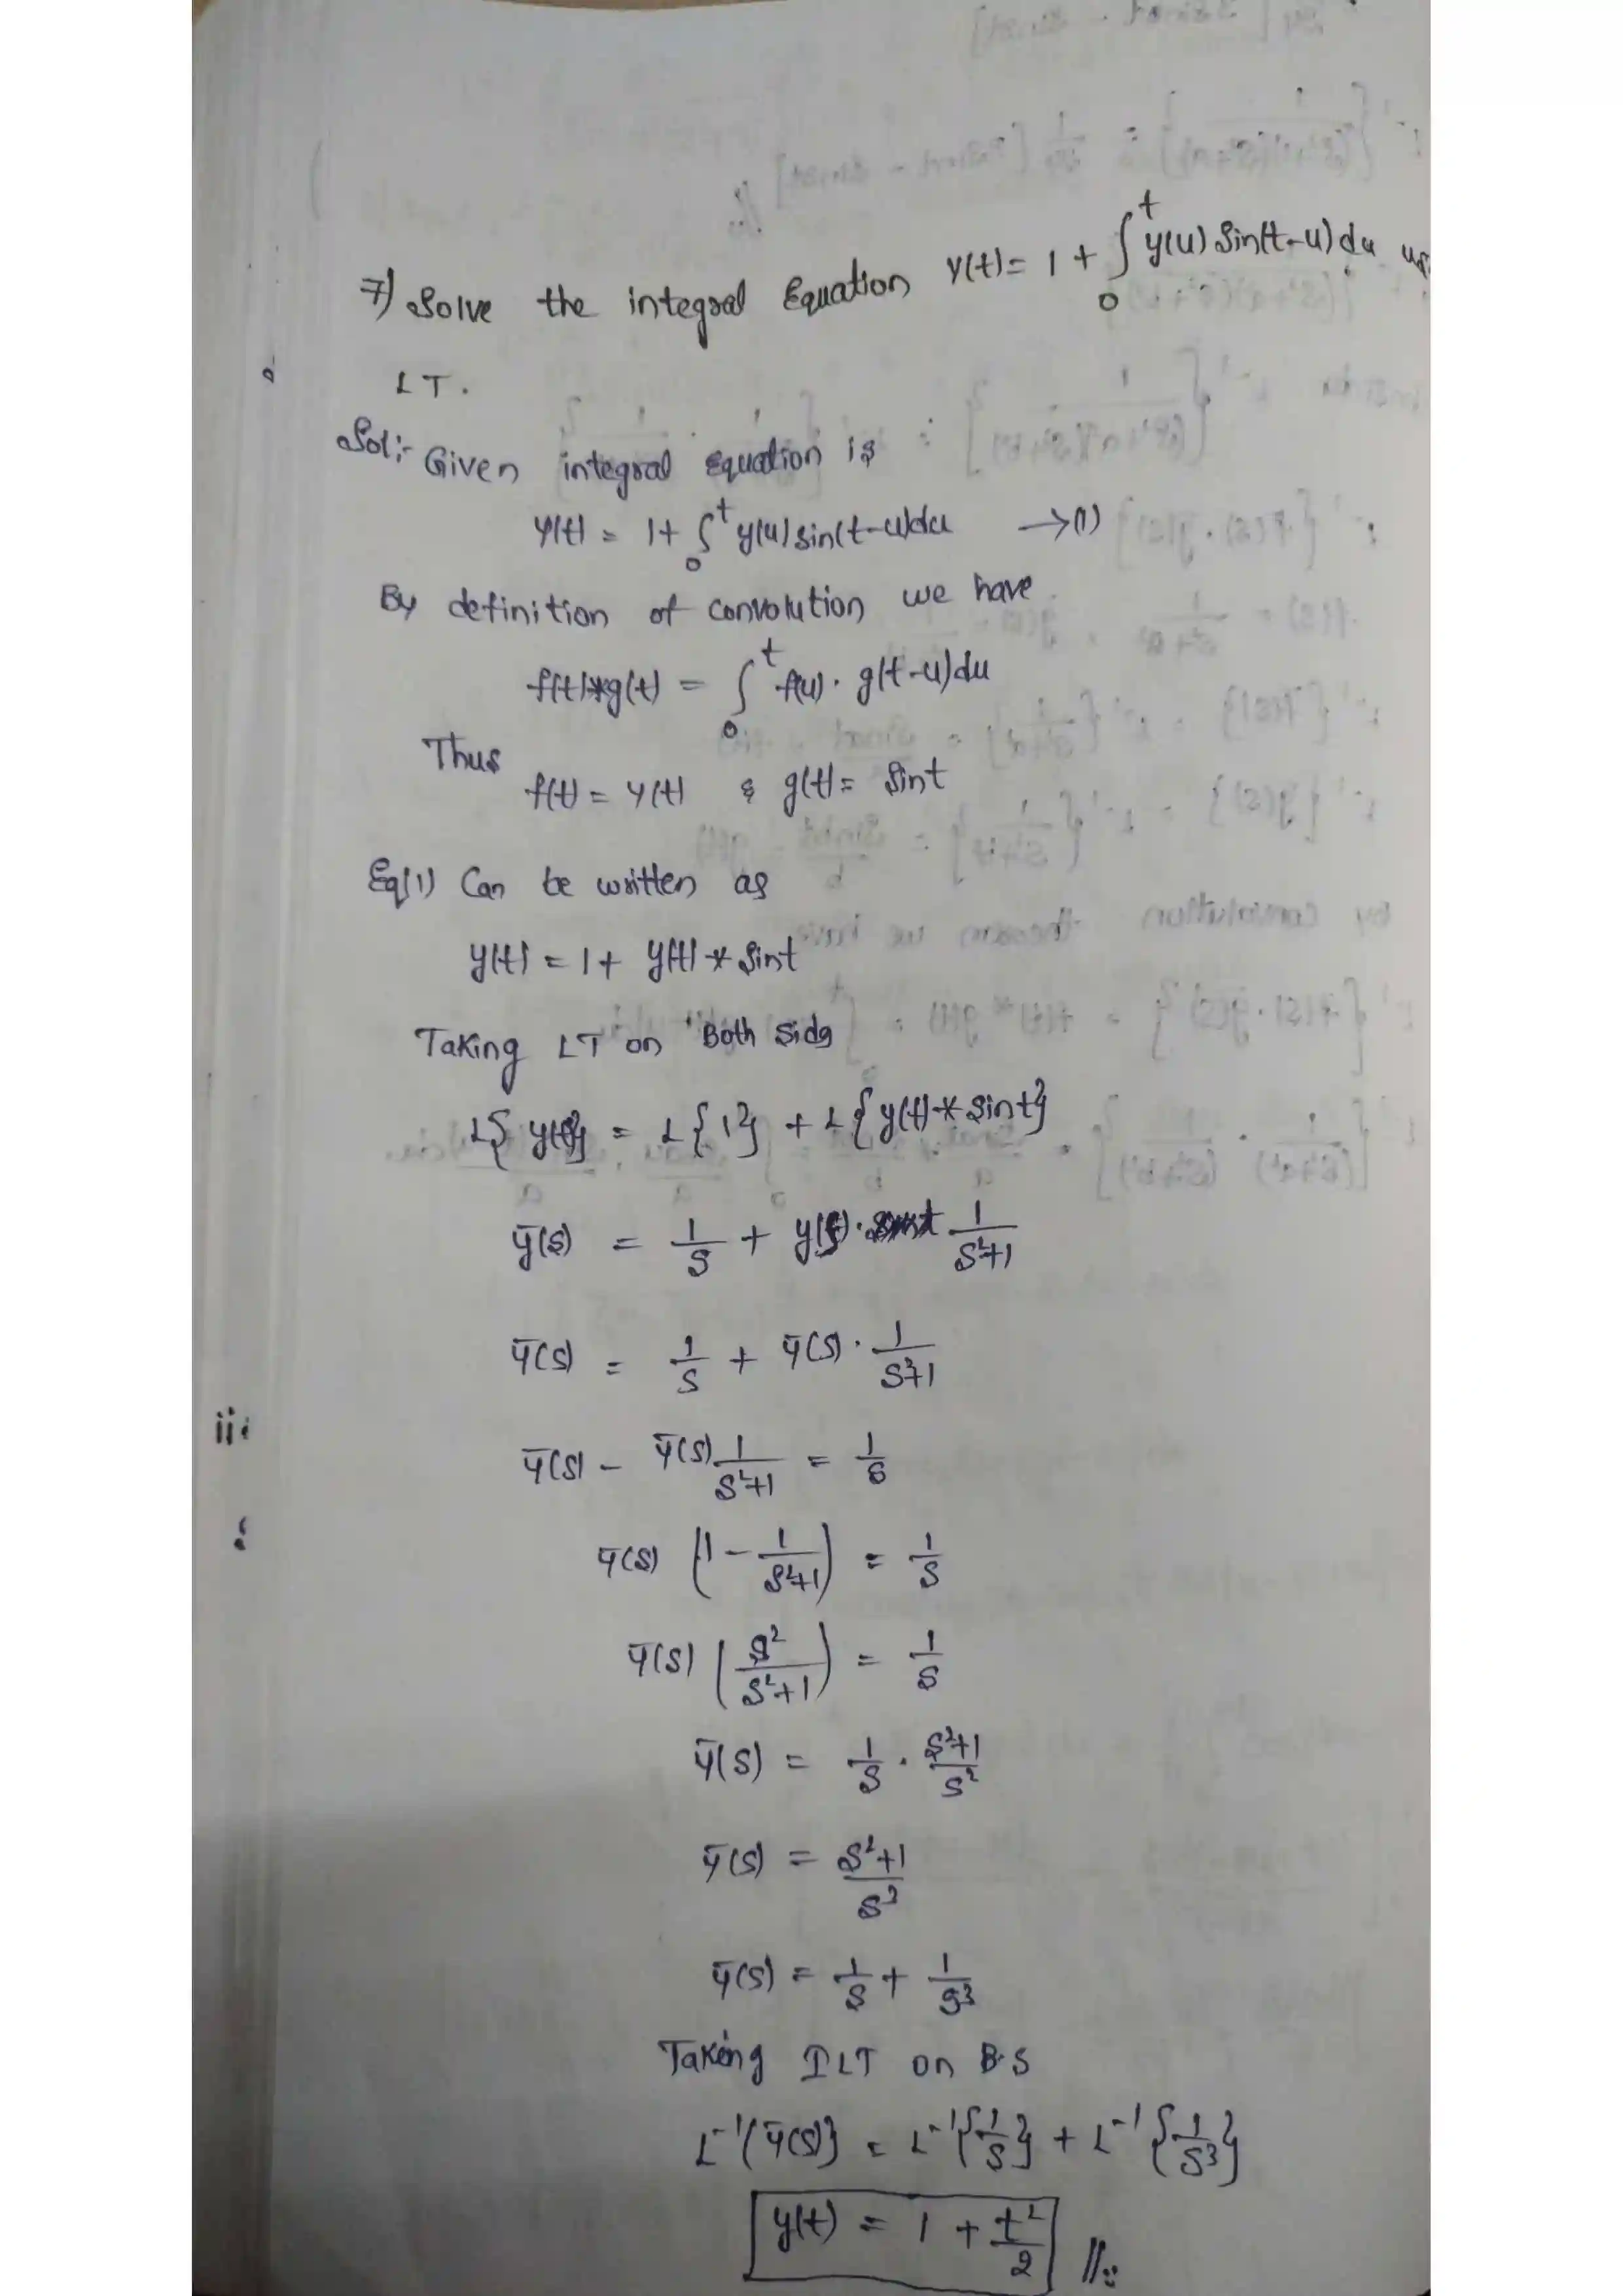 7) Solve the integral Equation y(t) = 1 + ∫₀ᵗ y(u) Sin(t-u) du
LT.
Sol:- Given integral equation is
y(t) = 1 + ∫₀ᵗ y(u) sin(t-u)du → (1)
By definition of convolution we have
f(t)*g(t) = ∫₀ᵗ f(u) . g(t-u)du
Thus
f(t) = y(t) & g(t) = Sint
Eq(1) Can be written as
y(t) = 1 + y(t) * Sint
Taking LT on Both Sids
L{y(t)} = L{1} + L{y(t) * Sint}
ȳ(s) = 1/s + y(s) . 1/s²+1
ȳ(s) = 1/s + ȳ(s) . 1/s²+1
ȳ(s) - ȳ(s) 1/s²+1 = 1/s
ȳ(s) (1 - 1/s²+1) = 1/s
ȳ(s) (s²/s²+1) = 1/s
ȳ(s) = 1/s . s²+1/s²
ȳ(s) = s²+1/s³
ȳ(s) = 1/s + 1/s³
Taking ILT on B.S
L⁻¹(ȳ(s)} = L⁻¹{1/s} + L⁻¹{1/s³}
y(t) = 1 + t²/2 //: